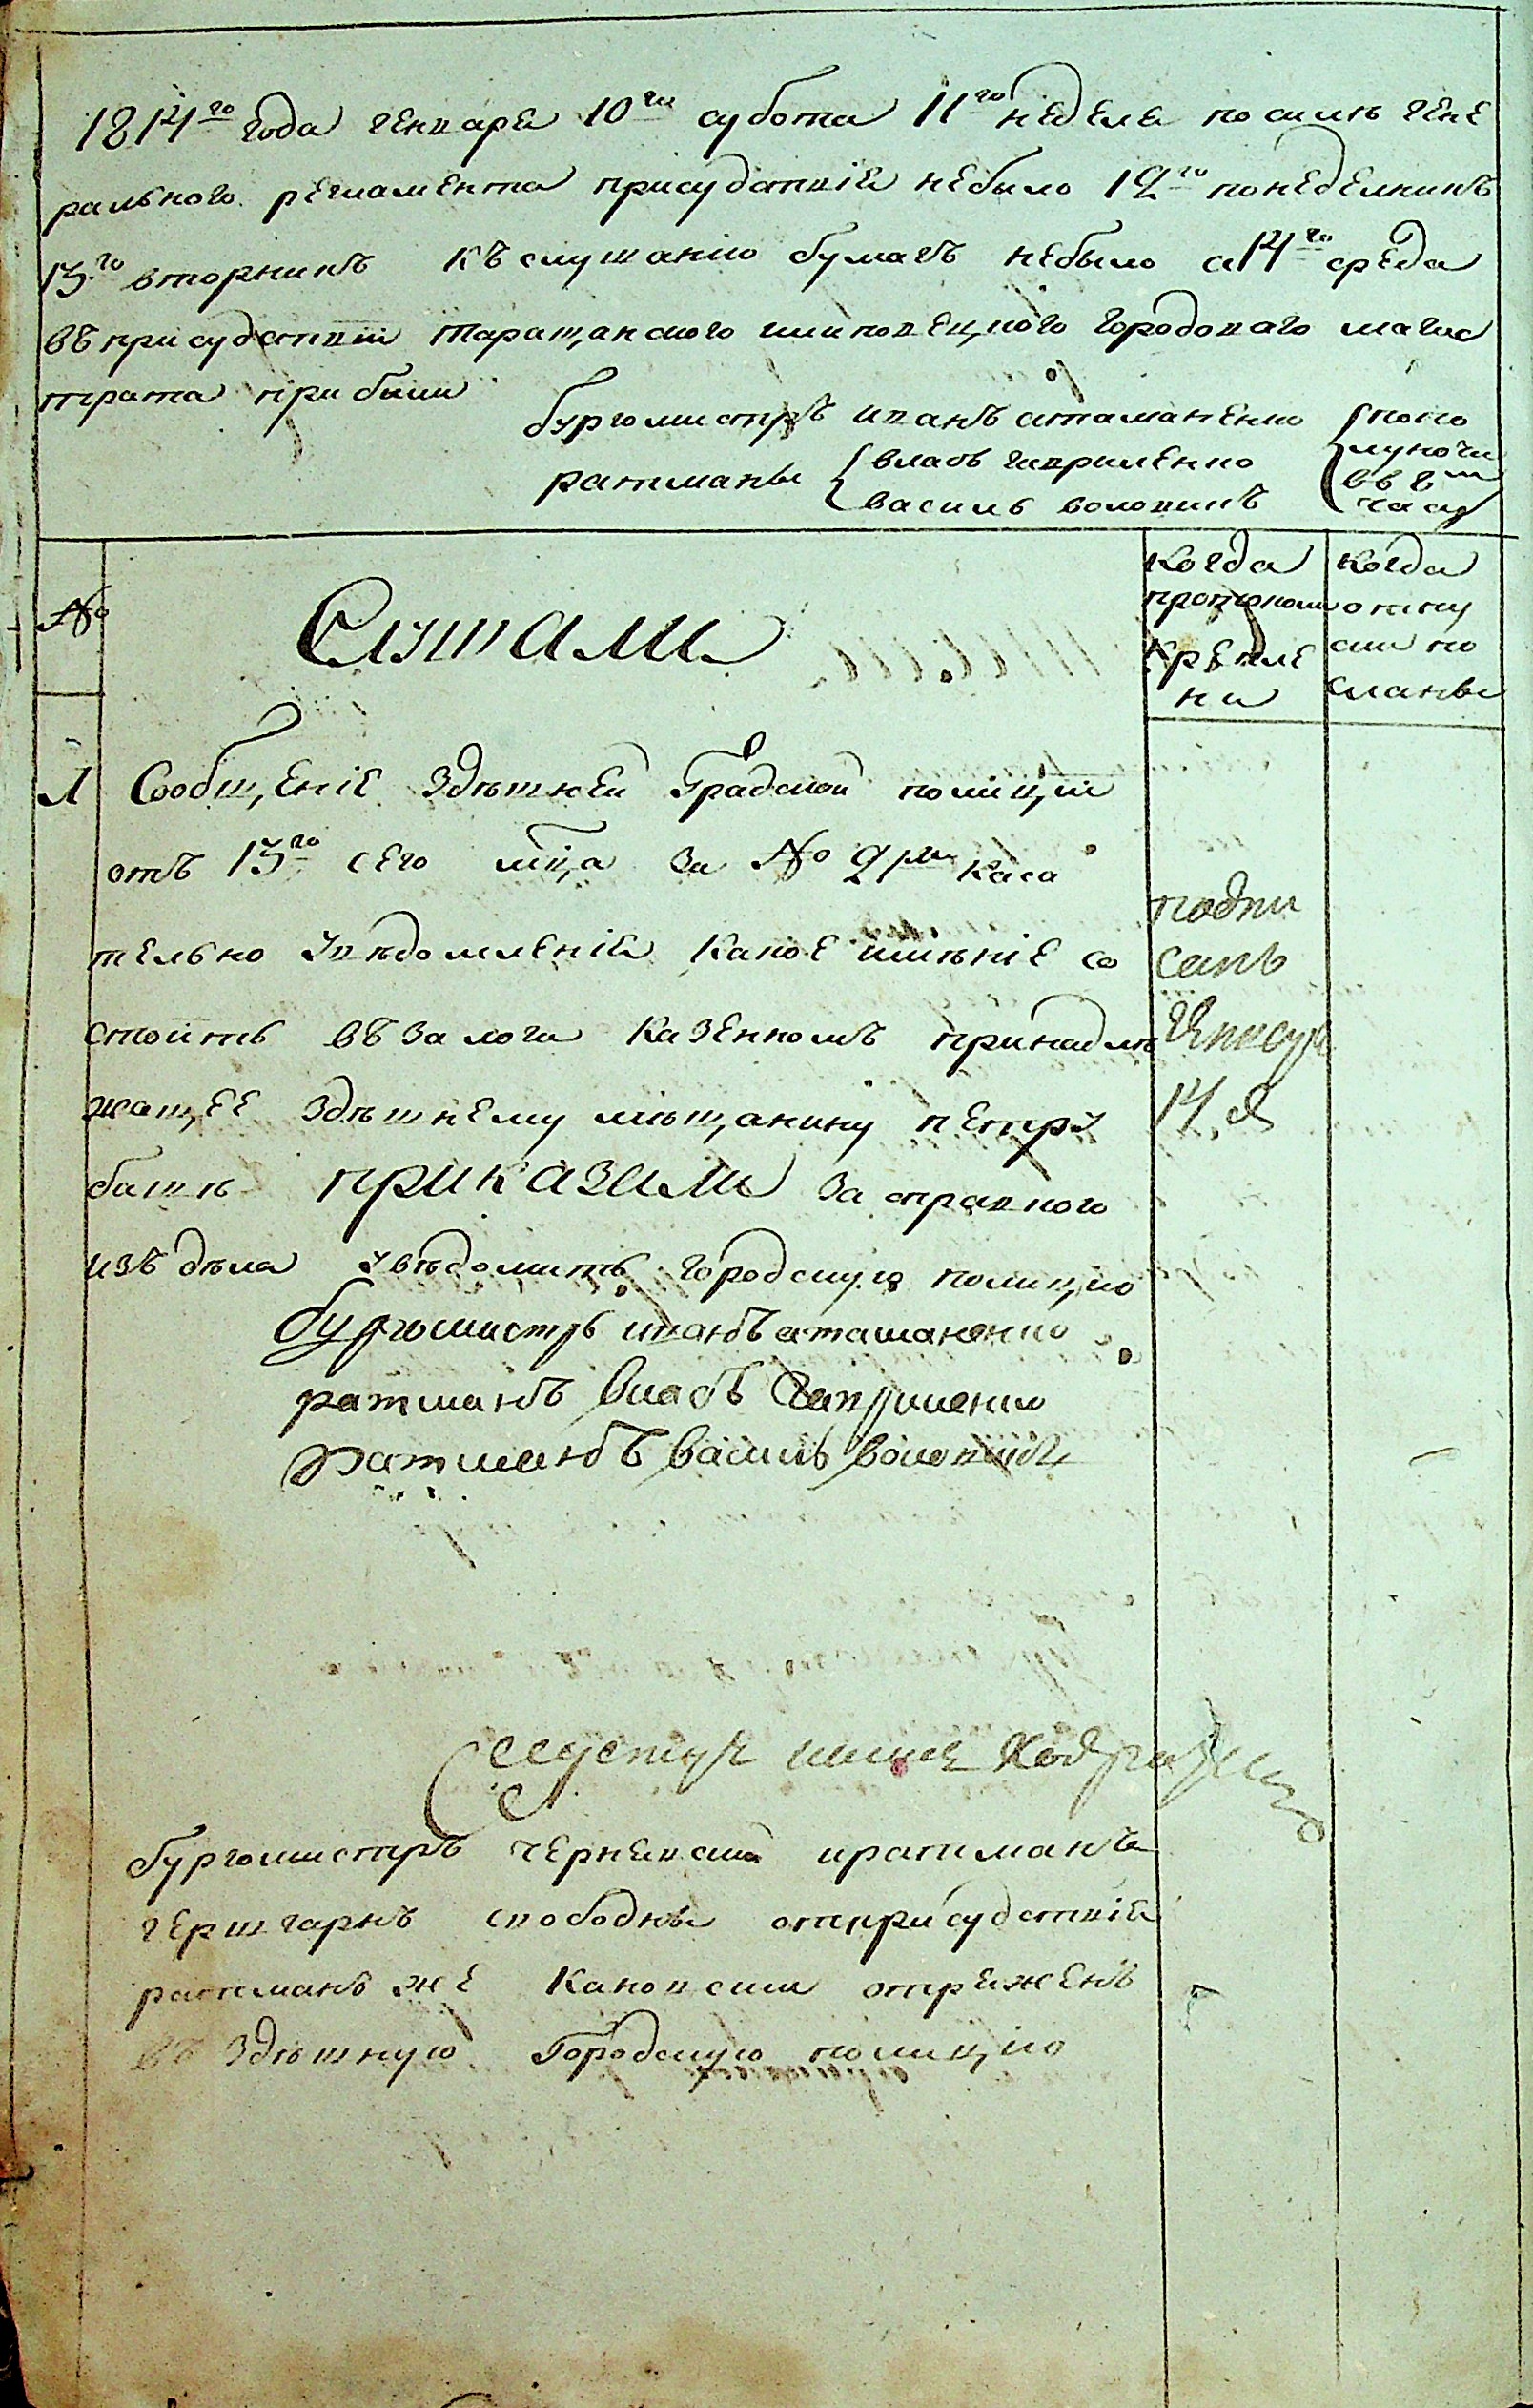 1814го года генваря 10го субота 11го неделя посилѣ гене
рального регламента присудствія небыло 12го понеделникъ
13го вторникъ къ слушанію бумагъ небыло а 14го среда
въ присудствіи таращанского шиповецкого городоваго магис
трата прибыли
бургомистръ иванъ атаманенко
ратманы влась гавриленко
василь воловикъ
полуночи
въ 8м
часу
№
Слушали
когда
протоколи
крепле
ни
когда
отпу
ски по
сланы
1 Сообщеніе здѣшней Градской полиціи
отъ 13го сего мца за № 21м каса
тельно увѣдомленія какое имѣніе со
стоитъ въ залоги казенномъ принадле
жащее здѣшнему мѣщанину петру
башѣ приказали за справкого
изъ дѣла увѣдомить городскую полицію
подпи
санъ
Генвар
14. д
бургомистръ иванъ атаманенко
ратманъ власъ Гавриленко
ратманъ василь воловикъ
бургомистръ чернявски иратманъ
гершгарнъ свободны отприсудствія
ратманъ же каковски отряженъ
въ здѣшную Городскую полицію